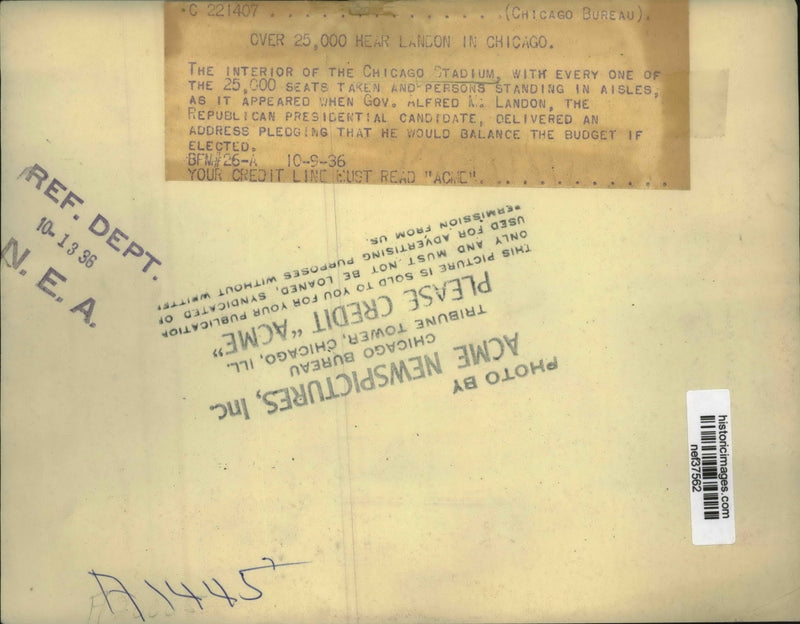 C 221407 . . . . . . . . . . . . . . . . . (CHICAGO BUREAU).
OVER 25,000 HEAR LANDON IN CHICAGO.
THE INTERIOR OF THE CHICAGO STADIUM, WITH EVERY ONE OF
THE 25,000 SEATS TAKEN AND PERSONS STANDING IN AISLES,
AS IT APPEARED WHEN GOV. ALFRED M. LANDON, THE
REPUBLICAN PRESIDENTIAL CANDIDATE, DELIVERED AN
ADDRESS PLEDGING THAT HE WOULD BALANCE THE BUDGET IF
ELECTED.
BFM#26-A 10-9-36
YOUR CREDIT LINE MUST READ "ACME". . . . . . . . . . . . .
REF. DEPT.
10-13 36
N. E. A.
PHOTO BY
ACME NEWSPICTURES, Inc.
CHICAGO BUREAU
TRIBUNE TOWER, CHICAGO, ILL.
PLEASE CREDIT "ACME"
THIS PICTURE IS SOLD TO YOU FOR YOUR PUBLICATION
ONLY AND MUST NOT BE LOANED, SYNDICATED OR
USED FOR ADVERTISING PURPOSES WITHOUT WRITTEN
PERMISSION FROM US.
historicimages.com
nef37562
A1445